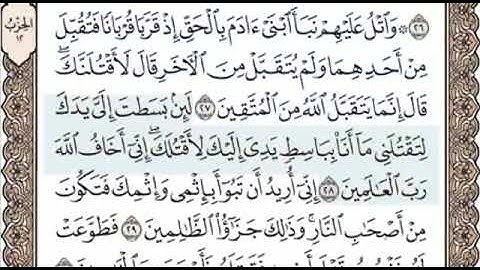 ﴿٢٦﴾ ۞ وَٱتۡلُ عَلَيۡهِمۡ نَبَأَ ٱبۡنَيۡ ءَادَمَ بِٱلۡحَقِّ إِذۡ قَرَّبَا قُرۡبَانٗا فَتُقُبِّلَ
مِنۡ أَحَدِهِمَا وَلَمۡ يُتَقَبَّلۡ مِنَ ٱلۡأٓخَرِ قَالَ لَأَقۡتُلَنَّكَۖ
قَالَ إِنَّمَا يَتَقَبَّلُ ٱللَّهُ مِنَ ٱلۡمُتَّقِينَ ﴿٢٧﴾ لَئِنۢ بَسَطتَ إِلَيَّ يَدَكَ
لِتَقۡتُلَنِي مَآ أَنَا۠ بِبَاسِطٖ يَدِيَ إِلَيۡكَ لِأَقۡتُلَكَۖ إِنِّيٓ أَخَافُ ٱللَّهَ
رَبَّ ٱلۡعَٰلَمِينَ ﴿٢٨﴾ إِنِّيٓ أُرِيدُ أَن تَبُوٓأَ بِإِثۡمِي وَإِثۡمِكَ فَتَكُونَ
مِنۡ أَصۡحَٰبِ ٱلنَّارِۚ وَذَٰلِكَ جَزَٰٓؤُاْ ٱلظَّٰلِمِينَ ﴿٢٩﴾ فَطَوَّعَتۡ